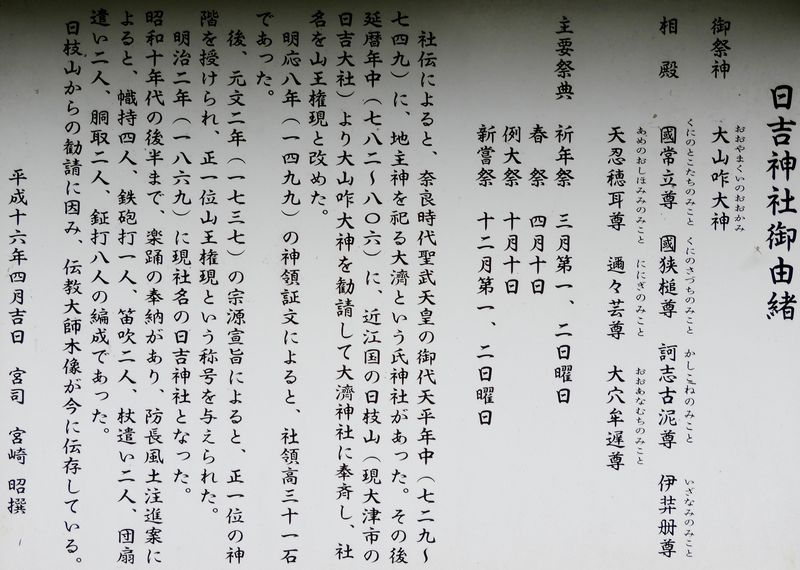 日吉神社御由緒
御祭神　大山咋大神
おおやまくいのおおかみ
相　殿　國常立尊　國狭槌尊　訶志古泥尊　伊弉册尊
くにのとこたちのみこと　くにのさづちのみこと　かしこねのみこと　いざなみのみこと
天忍穂耳尊　邇々芸尊　大穴牟遅尊
あめのおしほみみのみこと　ににぎのみこと　おおあなむちのみこと
主要祭典　祈年祭　三月第一、二日曜日
春　祭　四月十日
例大祭　十月十日
新嘗祭　十二月第一、二日曜日
社伝によると、奈良時代聖武天皇の御代天平年中（七二九〜
七四九）に、地主神を祀る大濟という氏神社があった。その後
延暦年中（七八二〜八〇六）に、近江国の日枝山（現大津市の
日吉大社）より大山咋大神を勧請して大濟神社に奉斉し、社
名を山王権現と改めた。
明応八年（一四九九）の神領証文によると、社領高三十一石
であった。
後、元文二年（一七三七）の宗源宣旨によると、正一位の神
階を授けられ、正一位山王権現という称号を与えられた。
明治二年（一八六九）に現社名の日吉神社となった。
昭和十年代の後半まで、楽踊の奉納があり、防長風土注進案に
よると、幟持四人、鉄砲打一人、笛吹二人、杖遣い二人、団扇
遣い二人、胴取二人、鉦打八人の編成であった。
日枝山からの勧請に因み、伝教大師木像が今に伝存している。
平成十六年四月吉日　宮司　宮崎　昭撰